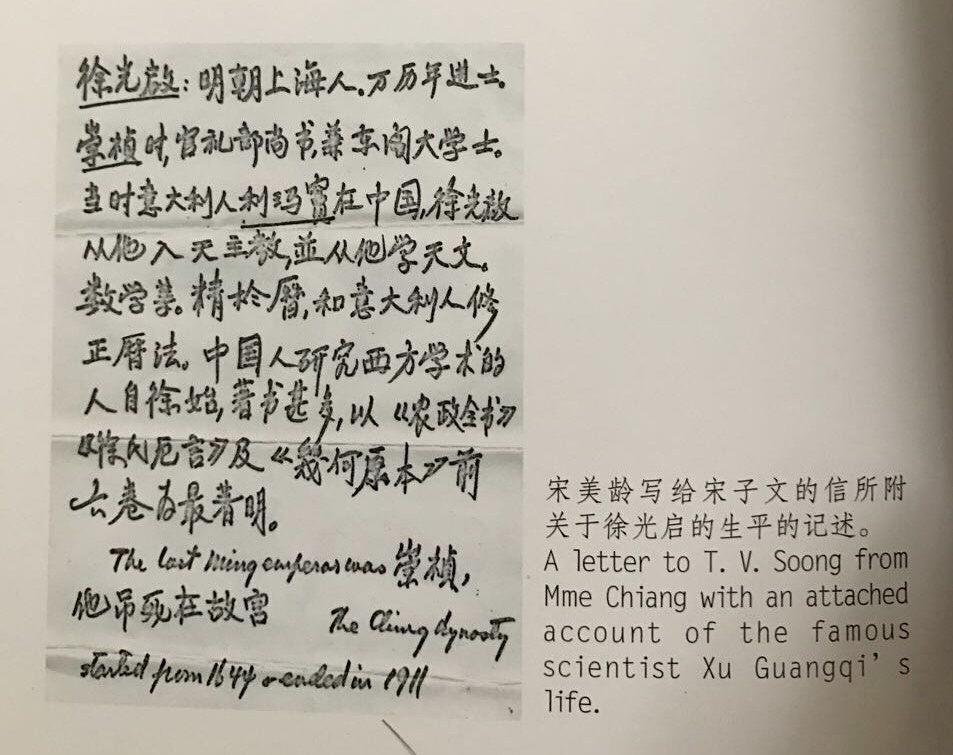 徐光啟：明朝上海人。万历年進士。
崇楨时,官礼部尚书,兼东阁大学士。
当时意大利人利玛竇在中国,徐光啟
从他入天主教,並从他学天文。
数学等。精於曆,和意大利人修
正曆法。中国人研究西方学术的
人自徐始,著书甚多,以《农政全书》
《徐氏卮言》及《幾何原本》前
六卷为最著明。
The last Ming emperor was 崇楨,
他吊死在故宫
The Ching dynasty
started from 1644 & ended in 1911
宋美龄写给宋子文的信所附
关于徐光启的生平的记述。
A letter to T. V. Soong from
Mme Chiang with an attached
account of the famous
scientist Xu Guangqi's
life.